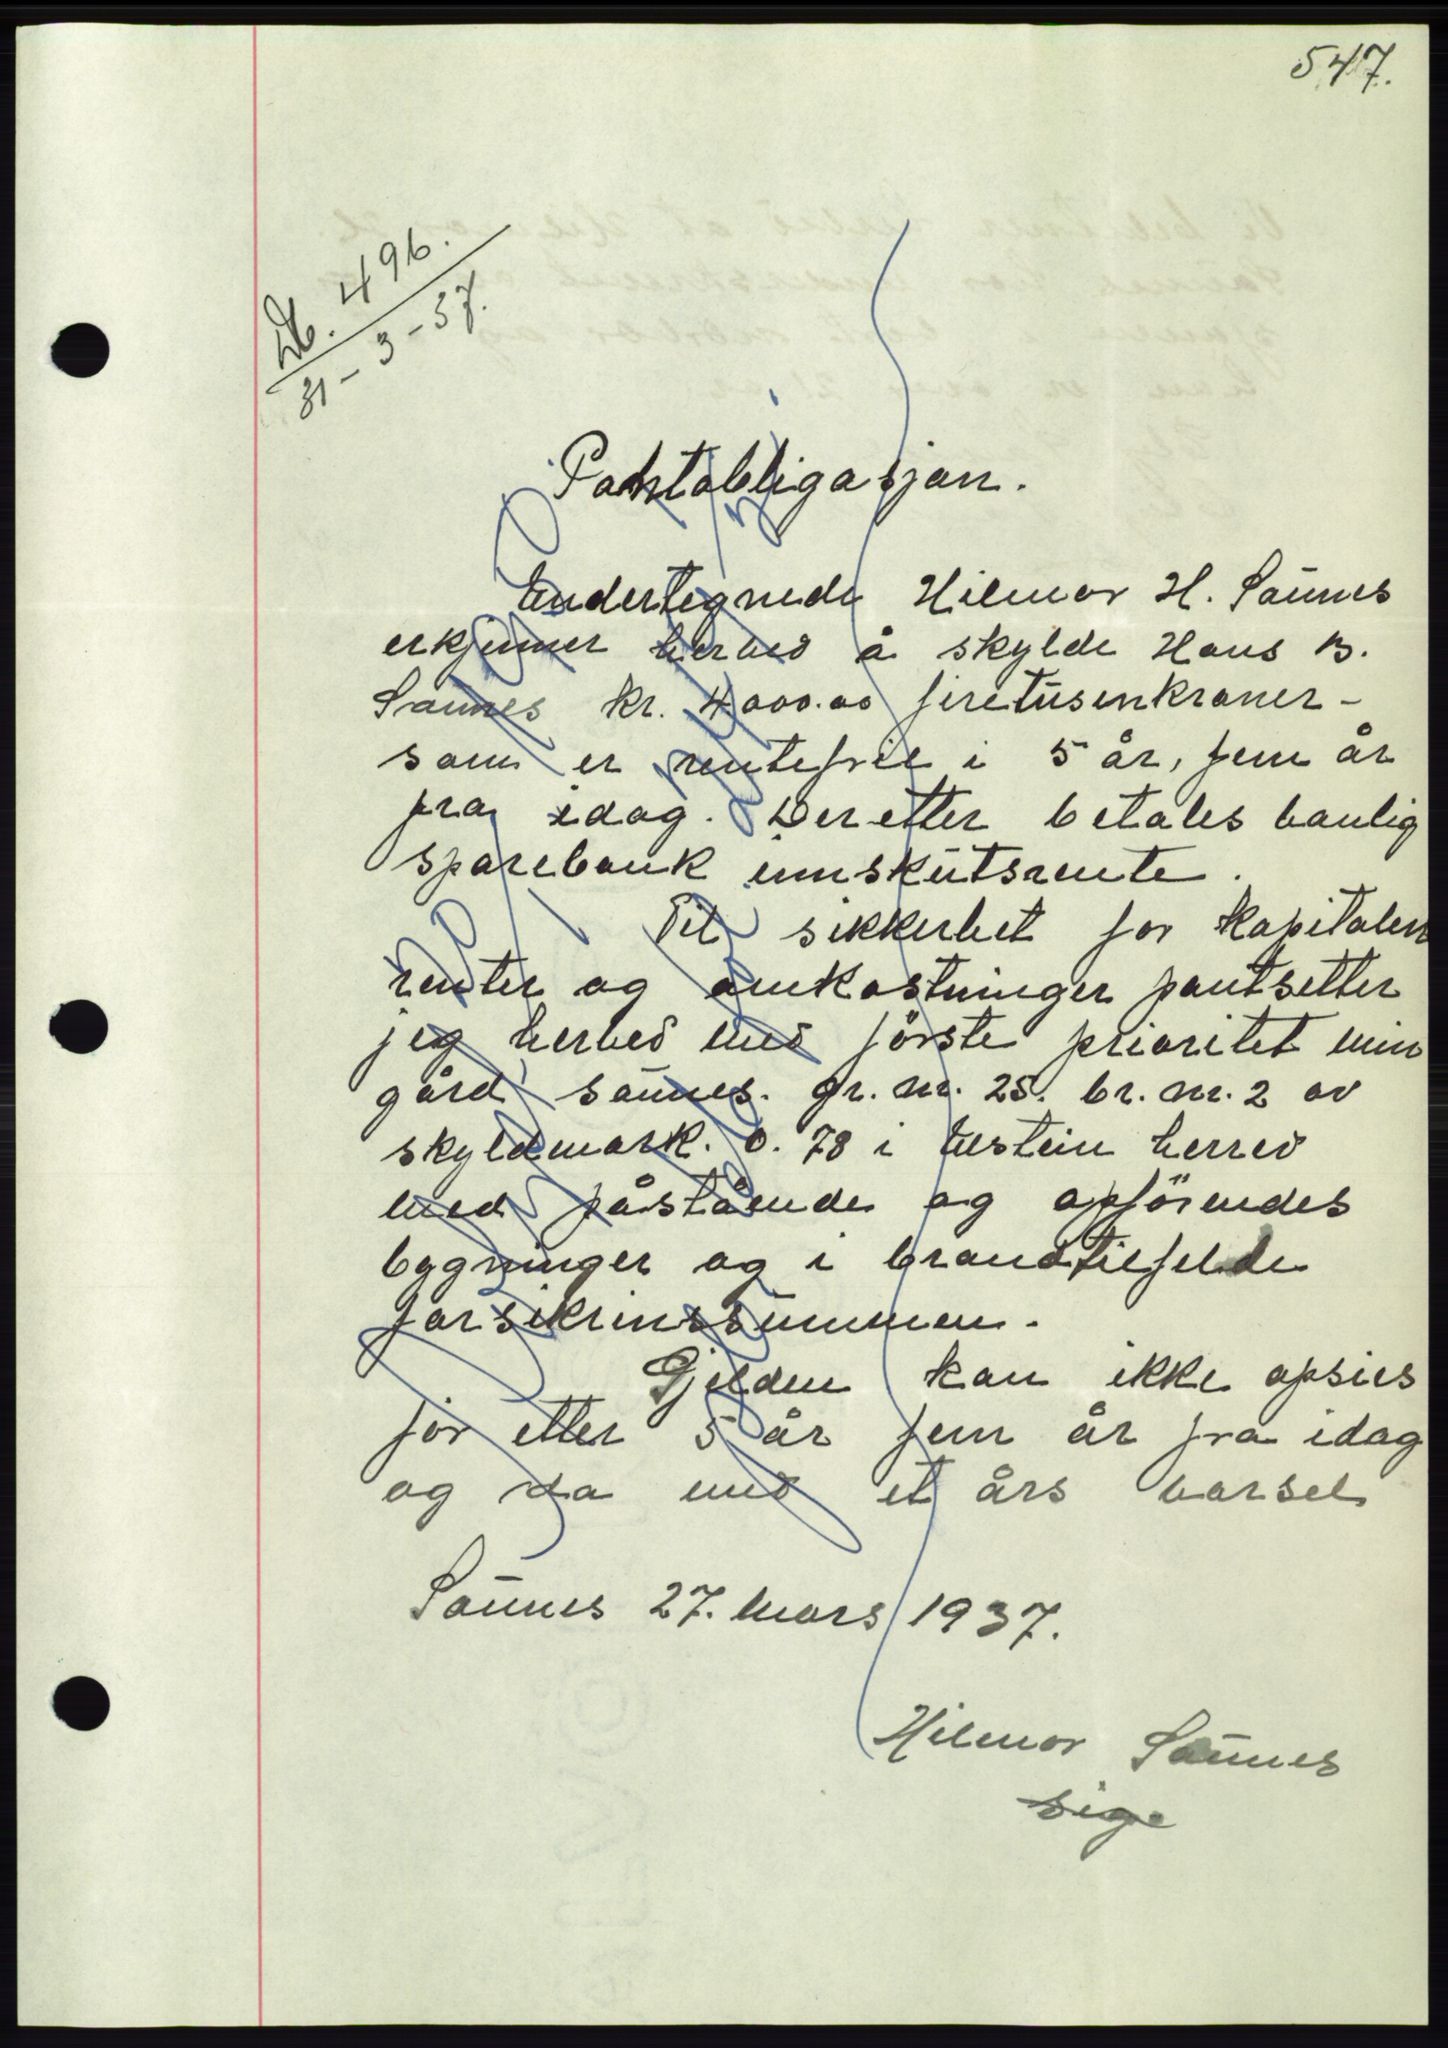 547.
Db. 496.
31-3-37.
Pantobligasjon.
Undertegnede Hilmar H. Saünes
erkjenner herved å skylde Hans B.
Saunes kr. 4000.00 firetusenkroner-
som er rentefrie i 5 år, fem år
fra idag. Deretter betales vanlig
sparebank innskutsrente.
Til sikkerhet for kapitalen
renter og omkostninger pantsetter
jeg herved med förste prioritet min
gård, saünes. gr. nr. 25. br. nr. 2 av
skyldmark. 0. 78 i Ulstein herred
med påstående og opförendes
bygninger og i brandtilfelde
forsikrinssummen.
Gjelden kan ikke opsies
för etter 5 år fem år fra idag
og da med et års varsel
Saünes 27. Mars 1937.
Hilmar Saünes
sign